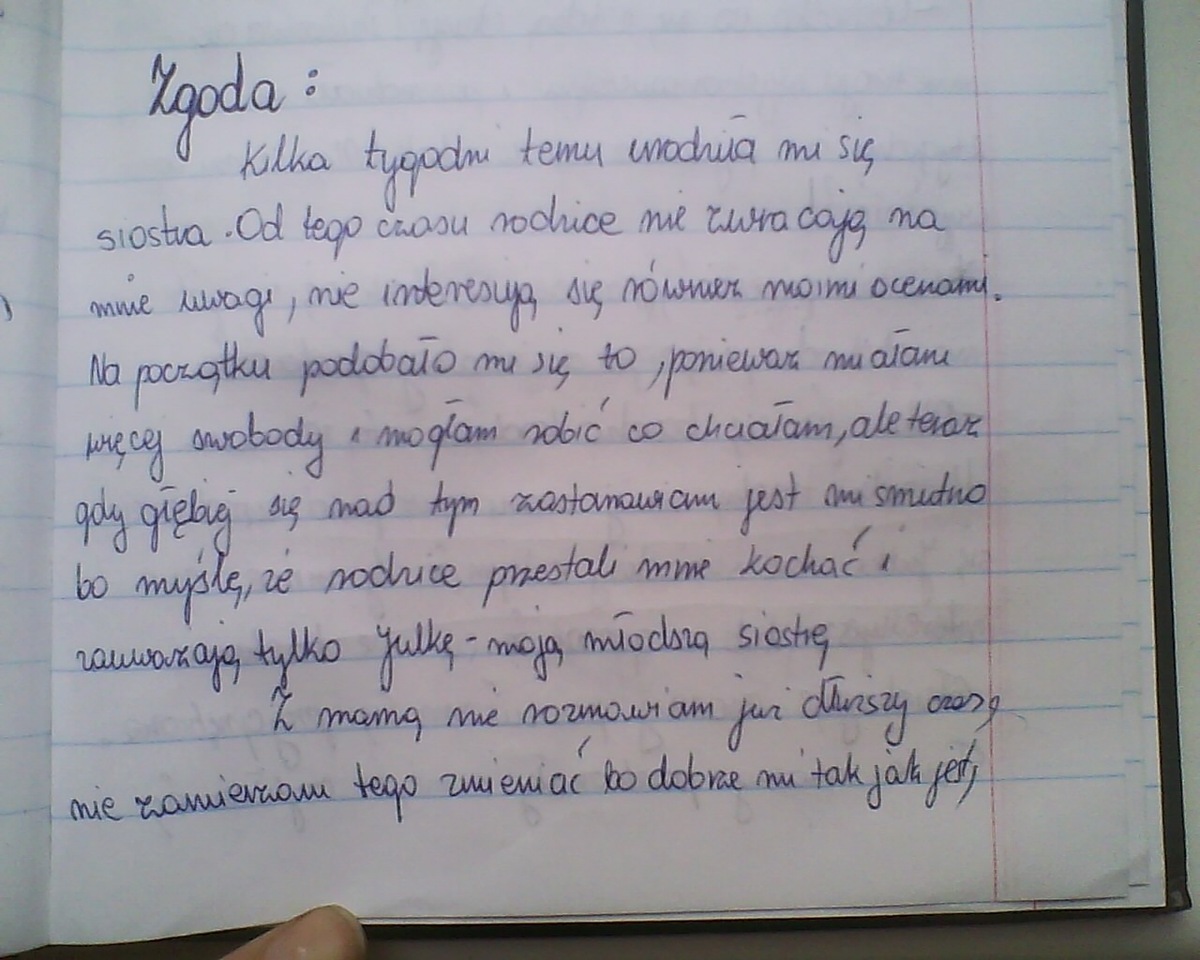 Zgoda:
Kilka tygodni temu urodziła mi się
siostra. Od tego czasu rodzice nie zwracają na
mnie uwagi, nie interesują się również moimi ocenami.
Na początku podobało mi się to, ponieważ miałam
więcej swobody i mogłam robić co chciałam, ale teraz
gdy głębiej się nad tym zastanawiam jest mi smutno
bo myślę, że rodzice przestali mnie kochać i
zauważają tylko Julkę - moją młodszą siostrę
Z mamą nie rozmawiam już dłuższy czas,
nie zamierzam tego zmieniać bo dobrze mi tak jak jest,